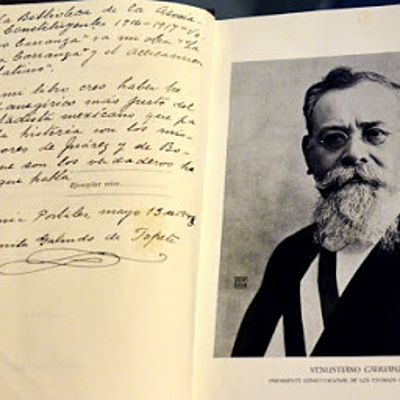 la Biblioteca de la Asocia
Constituyentes 1916-1917 "Ve
no Carranza" va mi obra "La
a Carranza" y el Acercamien
Latino".
mi libro creo haber he
anegírico más justo del
tadista mexicano que pa
la historia con los mis
ores de Juárez y de Bo
que son los verdaderos hé
que habla
Ejemplar núm.
Portales, mayo 13 de
Galindo de Topete
VENUSTIANO CARRANZA
PRESIDENTE CONSTITUCIONAL DE LOS ESTADOS